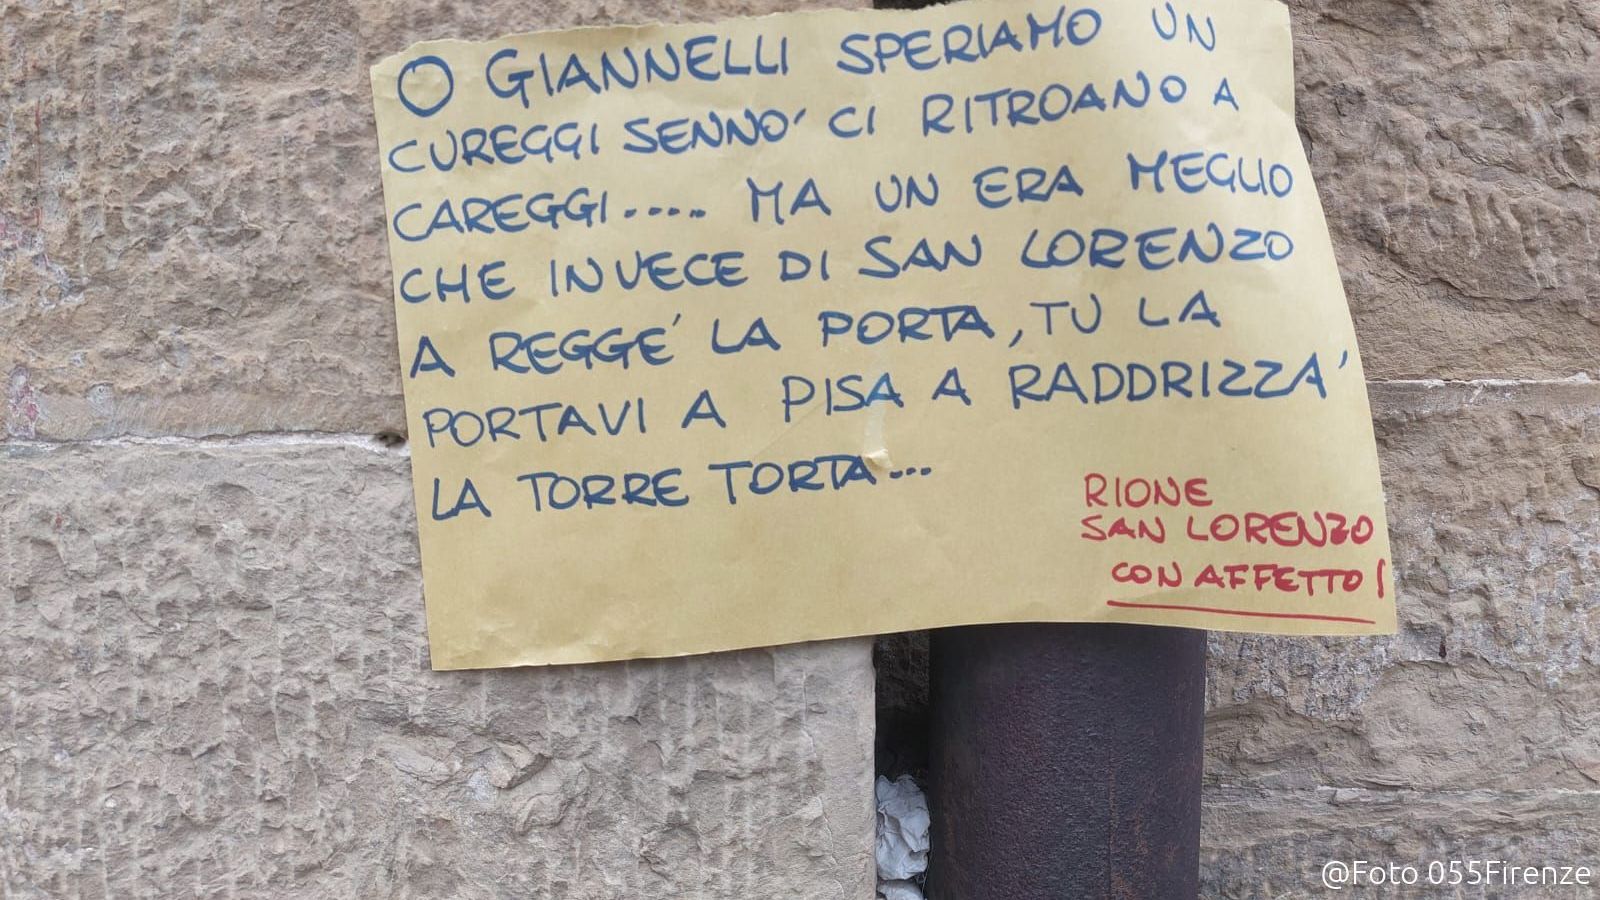 O GIANNELLI SPERIAMO UN
CUREGGI SENNO' CI RITROANO A
CAREGGI..... MA UN ERA MEGLIO
CHE INVECE DI SAN LORENZO
A REGGE' LA PORTA, TU LA
PORTAVI A PISA A RADDRIZZA'
LA TORRE TORTA...
RIONE
SAN LORENZO
CON AFFETTO!
@Foto 055Firenze